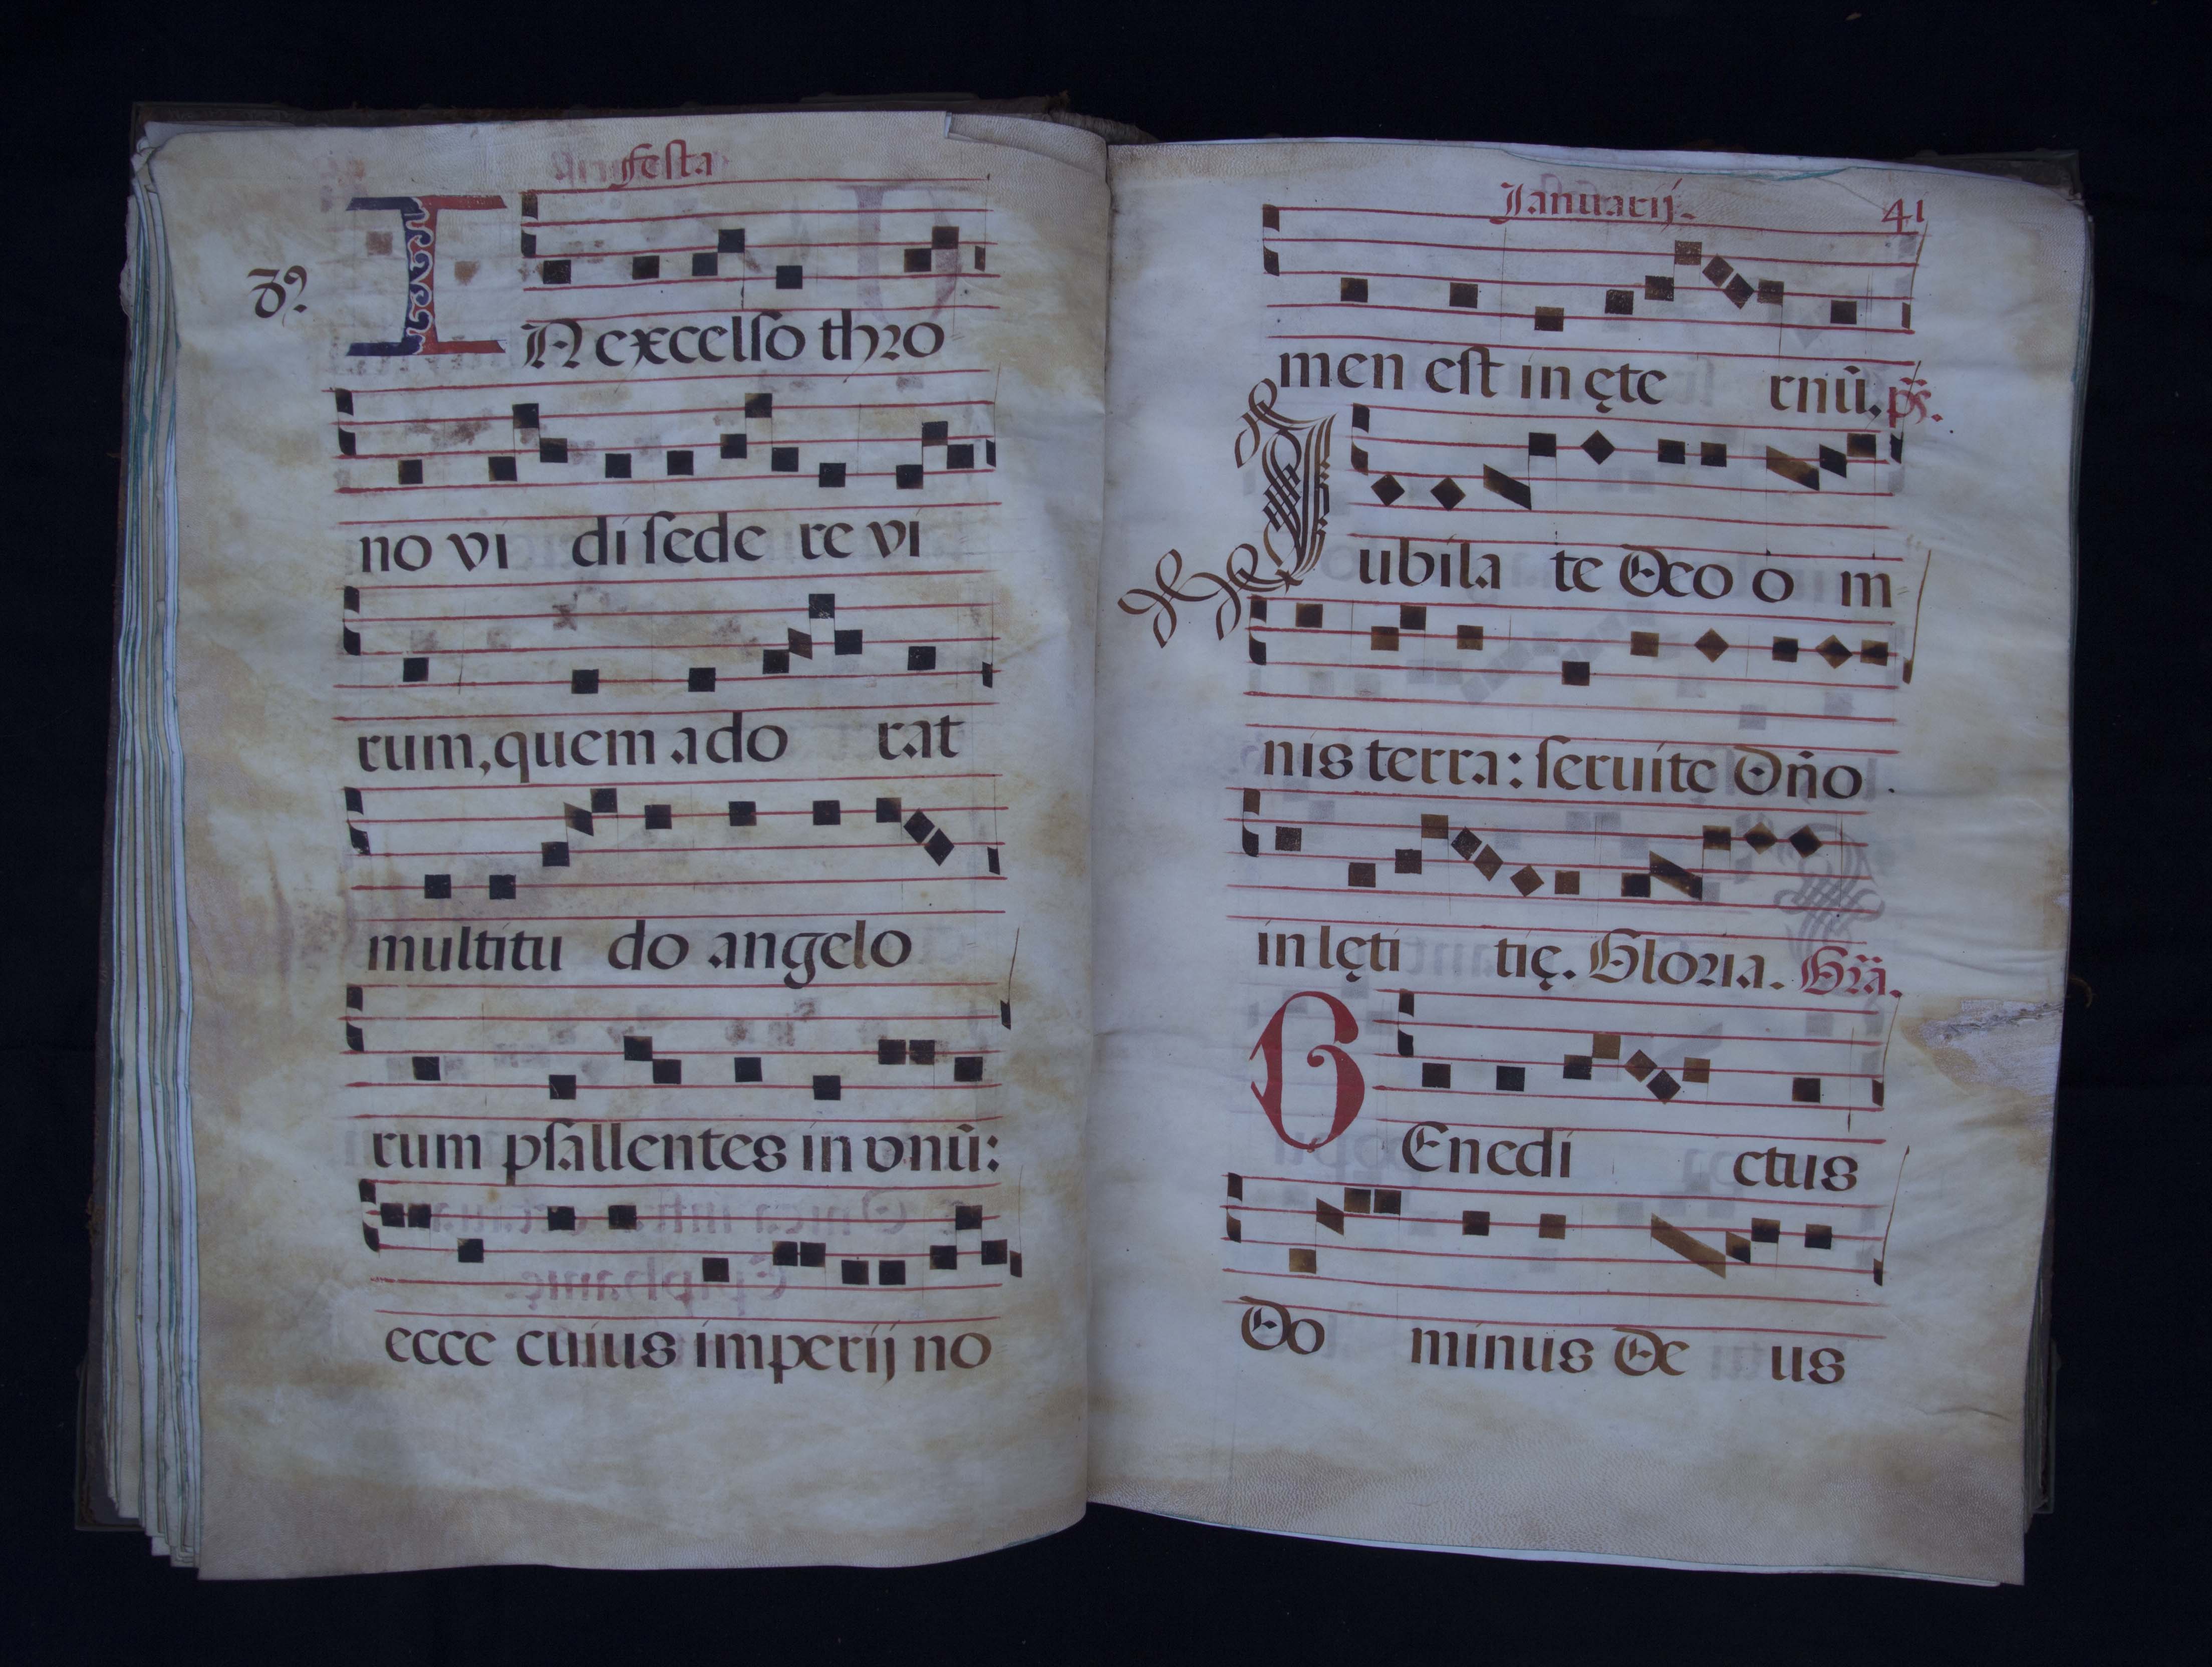 festa
8º
IN excelso thro
no vi di sede re vi
rum, quem ado rat
multitu do angelo
rum psallentes in vnũ:
ecce cuius imperij no
Januarij. 41
men est in ęte rnũ. ps̃.
Jubila te Deo o m
nis terra: seruite Dño
in lęti tię. Gloria. Grã.
BEnedi ctus
Do minus De us